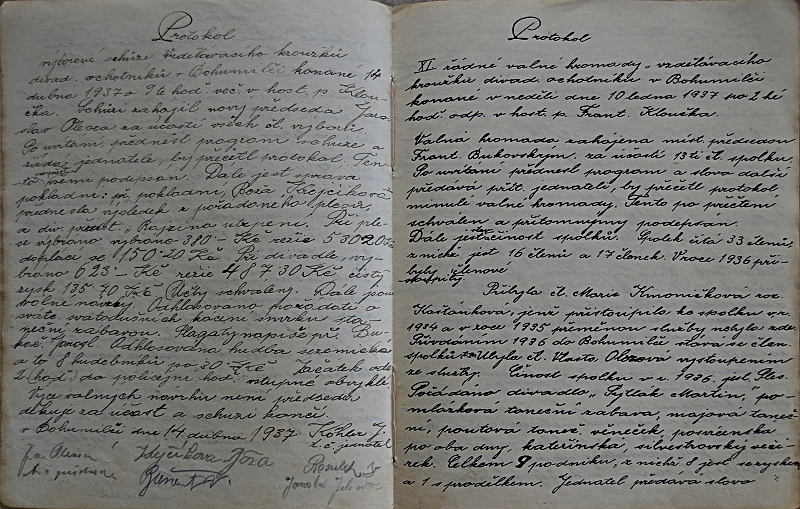 Protokol
výborové schůze Vzdělávacího kroužků
divad. ochotníků v Bohumilči konané 14
dubna 1937 o 9té hod. več. v host. p. Klou-
čka. Schůzi zahájil nový předseda Jaro-
slav Olesca za účasti všech čl. výborů
Po uvítání přednést program schůze a
žádá jednatele, by přečetl protokol Ten-
to všemi podepsán. Dále jest zpráva
pokladní: př. pokladní, Boža
přednesla výsledek z pořádaného plesu,
a div. předst. „Rajčina utrpení. Při ple-
se vybráno vybráno 380- Kč režie 530 20 Kč
doplaceno se 150-20 Kč Při divadle, vy-
bráno 623- Kč režie 487 30 Kč čistý
zysk 135-70 Kč Účty schváleny. Dále jsou
volné návrhy. Odhlasováno pořádati o
svatodušních kácení smrku s ta-
neční zábavou. Plagáty napíše př. Bu-
Odhlasována hudba sezemická
a to 8 hudebníků po 30 Kč Začátek ode
2 (hod.) do policejní hod. vstupné obvyklé
Více valných návrhů není předseda
děkuje za účast a schůzi končí.
v Bohumilči dne 14 dubna 1937 Köhler J.
t. č. jednatel
Protokol
XI řádné valné hromady „vzdělávacího
kroužků divad. ochotníků v Bohumilči
konané v neděli dne 10 ledna 1937 po 2 hé
hodi odp. v host. p. Frant. Kloučka.
Valná hromada zahájena míst. předsedou
Frant. Bukovským, za účasti 13 ti čl. spolku.
Po uvítání přednesl program a slova další
předává přít. jednateli, by přečetl protokol
minulé valné hromady. Tento po přečtení
schválen a přítomnými podepsán.
Dále jest činnost spolků. Spolek čítá 33 členů
z nichž jest 16 členů a 17 členek. V roce 1936 při-
byly členové
Přibyla čl. Marie Kmoníčková roz.
Kaštánková, jenž přistoupila ke spolku v r.
1934 a v roce 1935 přeměnou služby nebyla zde.
Přivdáním 1936 do Bohumilče stává se člen
spolků. Ubyla čl. Vlasta Olezová vystoupením
ze služby. Činost spolku v r. 1936. jest. Ples.
Pořádáno divadlo „Pytlák Martin, po-
mlázková taneční zábava, májová taneč-
ní, pouťová taneč. věneček, posvícenská
po oba dny, kateřinská, silvestrovský večí-
rek. Celkem 9 podniků, z nichž 8 jest se zyskem
a 1 s prodělkem. Jednatel předává slovo